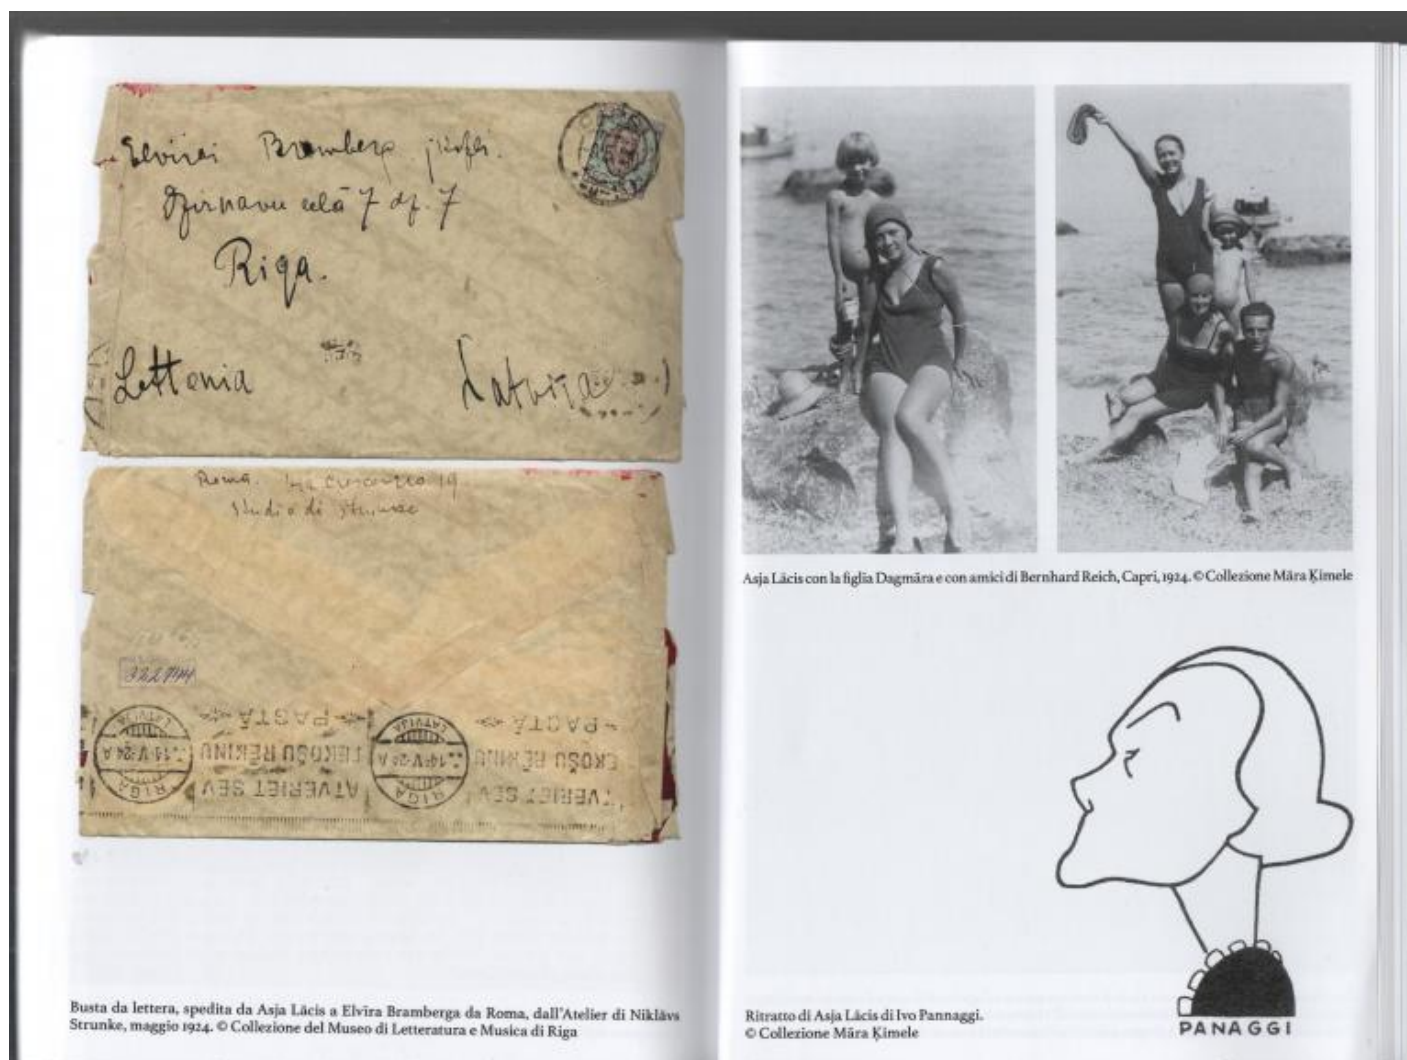 Elvirai Bramberg
Dzirnavu ielā 7 dz. 7
Riga.
Lettonia Latvija
Roma.
Studio di Strunke
322744
LATVIJA PASTĀ LATVIJA PASTĀ
14·V·24 TEKOŠU RĒĶINU 14·V·24 EKOŠU RĒĶINU
RIGA ATVERIET SEV RIGA TVERIET SEV
Busta da lettera, spedita da Asja Lācis a Elvīra Bramberga da Roma, dall'Atelier di Niklāvs
Strunke, maggio 1924. © Collezione del Museo di Letteratura e Musica di Riga
Asja Lācis con la figlia Dagmāra e con amici di Bernhard Reich, Capri, 1924. © Collezione Māra Ķimele
PANAGGI
Ritratto di Asja Lācis di Ivo Pannaggi.
© Collezione Māra Ķimele